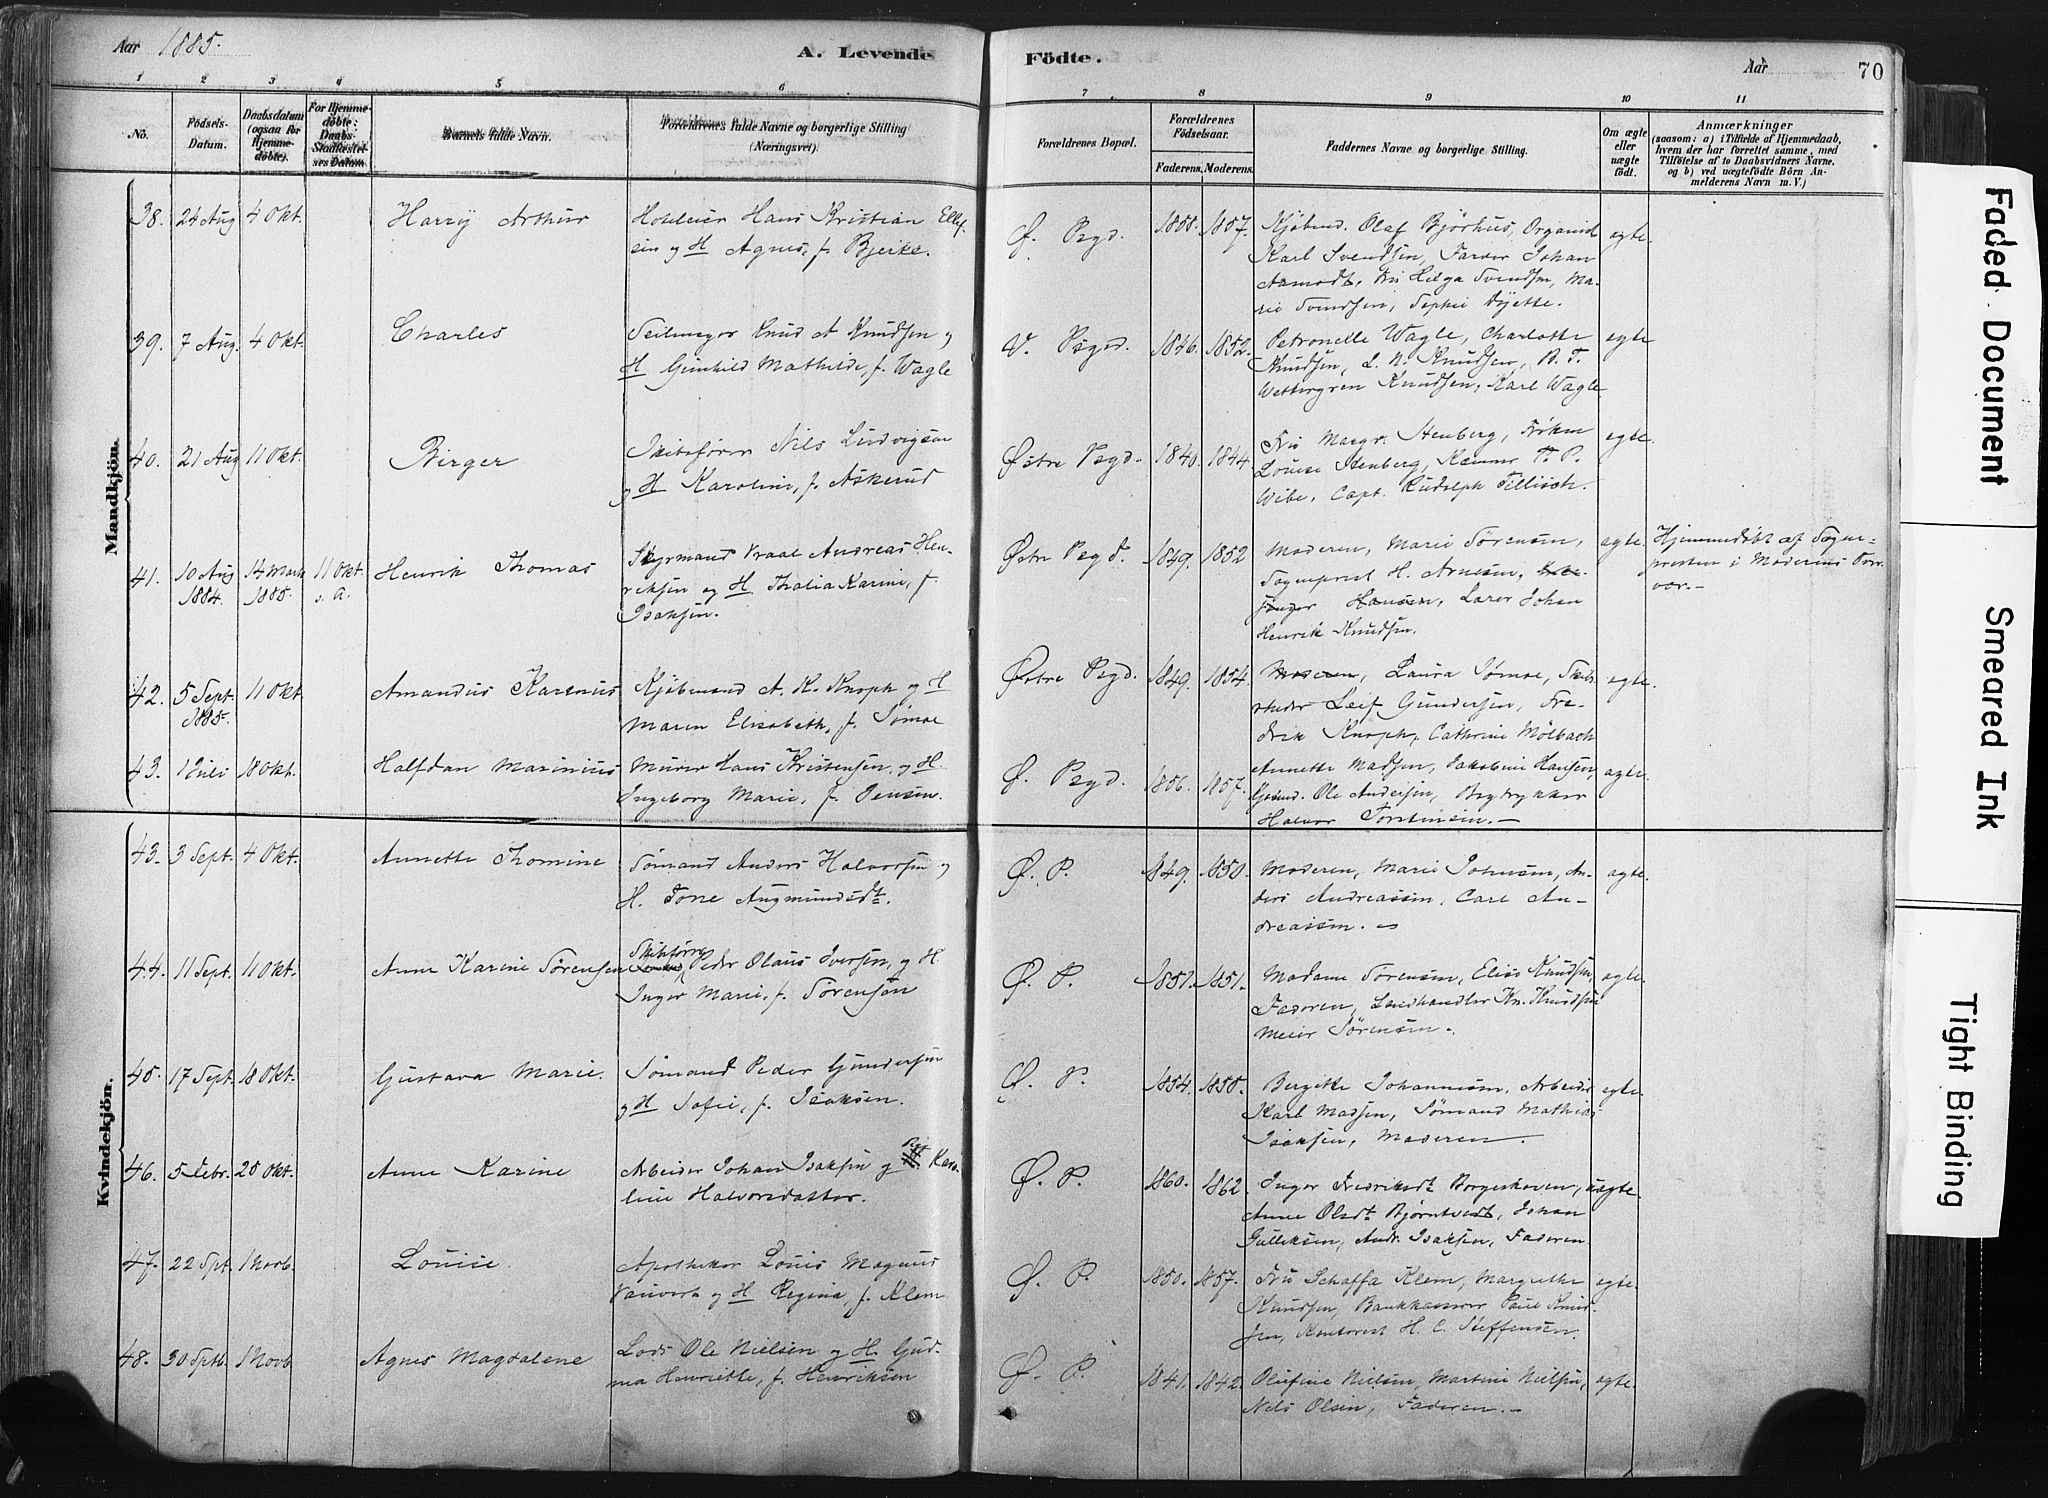 Aar 1885.
A. Levende Födte.
Aar
70
1 2 3 4 5 6 7 8 9 10 11
No.
Födsels-Datum.
Daabsdatum (ogsaa for Hjemme-döbte).
For Hjemme-döbte: Daabs-Stadfæstel-ses Datum
Barnets fulde Navn.
Forældrenes fulde Navne og borgerlige Stilling (Næringsvei).
Forældrenes Bopæl.
Forældrenes Födselsaar.
Faderens. Moderens.
Faddernes Navne og borgerlige Stilling.
Om ægte eller uægte födt.
Anmærkninger
(saasom: a) i Tilfælde af Hjemmedaab,
hvem der har forrettet samme, med
Tilföielse af to Daabsvidners Navne.
og b) ved uægtefödte Börn An-
melderens Navn m. V.)
Mandkjön.
38. 24 Aug 4 Okt. Harry Arthur Hans Kristian Ellef-
sen og H Agnes, f. Bjerke.
Ø. Psgd. 1855. 1857. Kjøbmd. Olaf Bjørhus, Organist
Karl Svendsen, Farver Johan
Aamodt, Fru Helga Svendsen, Ma-
rie Svendsen, Sophie
ægte.
39. 7 Aug. 4 Okt. Charles Seilmager Knud A Knudsen og
H Gunhild Mathilde, f. Wagle
V. Psgd. 1846. 1852. Petronelle Wagle, Charlotte
Knudsen, L. N. Knudsen, B. T.
Wettergren Knudsen, Karl Wagle
ægte
40. 21 Aug 11 Okt. Birger Skibsfører Nils Ludvigsen
og H Karoline, f. Askerud
Østre Psgd. 1840. 1844 Fru Margr. Stenberg, Frøken
Louise Stenberg, Kæmner P. P.
Wibe, Capt. Rudolph Tillisch.
ægte.
41. 10 Aug 1884. 14 Marts 1885. 11 Okt. s. A. Henrik Thomas Styrmand Vraal Andreas Hen-
riksen og H Thalia Karine, f.
Isaksen.
Østre Psgd. 1849. 1852 Moderen, Marie Sørensen,
Sogneprest H. Arnesen,
Hansen, Lærer Johan
Henrik Knudsen.
ægte. Hjemmedøbt af Sogne-
presten i Moderens Nær-
vær.-
42. 5 Sept. 1885. 11 Okt. Amandus Karenus Kjøbmand A. K. Knoph og H
Maren Elisabeth, f. Sømoe
Østre Psgd. 1849. 1854. Moderen, Laura Sømoe, Skibs-
rheder Leif Gundersen, Fre-
drik Knoph, Cathrine Mølbach
ægte.
43. 1 Juli 18 Okt. Halfdan Marinius Murer Hans Kristensen, og H.
Ingeborg Marie, f. Jensen.
Ø. Psgd. 1856. 1857. Annette Madsen, Jakobine Hansen,
Ole Andersen, Bogtrykker
Halvor Torstensen.-
ægte.
Kvindekjön.
43. 3 Sept. 4 Okt. Annette Thomine Sømand Anders Halvorsen og
H. Tone Augmundsdt.
Ø. P. 1849. 1850. Moderen, Marie Johnsen, An-
ders Andreassen, Carl An-
dreassen.-
ægte.
44. 11 Sept. 11 Okt. Anne Karine Sørensen Skibsfører Peder Olaus Iversen, og H
Inger Marie, f. Sørensen
Ø. P. 1851. 1851. Madame Sørensen, Elise Knudsen,
Faderen, Landhandler Kn. Knudsen
Meier Sørensen.
ægte.
45. 17 Sept. 18 Okt. Gustava Marie. Sømand Peder Gundersen
og H Sofie, f. Isaksen.
Ø. P. 1854. 1850. Bergitte Johannesen, Arbeider
Karl Madsen, Sømand Mathias
Isaksen, Moderen.
ægte.
46. 5 Febr. 25 Okt. Anne Karine Arbeider Johan Isaksen og Pige Karo-
line Halvorsdatter.
Ø. P. 1860. 1862. Inger Fredriksdt Borgeskoven,
Anne Olsdt Bjørntvedt, Johan
Gulliksen, Andr. Isaksen, Faderen
uægte.
47. 22 Spt. 1 Novb. Louise. Apotheker Louis Magnus
og H Regina, f. Klem
Ø. P. 1850. 1857. Fru Klem, Margrethe
Knudsen, Bankkasserer Paul Knud-
sen, Kontorist H. C. Steffensen.
ægte.
48. 30 Septb. 1 Novb Agnes Magdalene Lods Ole Nielsen og H. Gud-
ma Henriette, f. Henriksen
Ø. P. 1841. 1842. Olufine Nielsen, Martine Nielsen,
Nils Olsen, Faderen.-
ægte.
Faded Document
Smeared Ink
Tight Binding